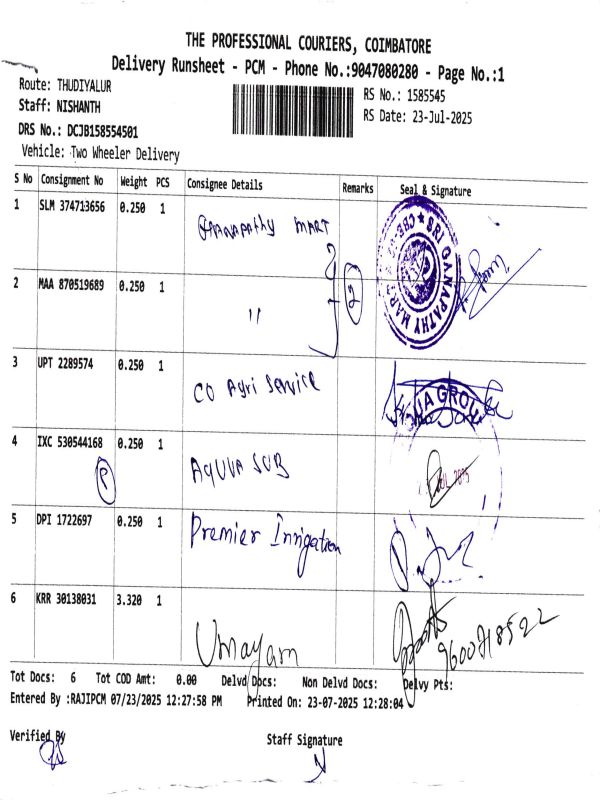 THE PROFESSIONAL COURIERS, COIMBATORE
Delivery Runsheet - PCM - Phone No.:9047080280 - Page No.:1
Route: THUDIYALUR
RS No.: 1585545
Staff: NISHANTH
RS Date: 23-Jul-2025
DRS No.: DCJB158554501
Vehicle: Two Wheeler Delivery
S No Consignment No Weight PCS Consignee Details Remarks Seal & Signature
1 SLM 374713656 0.250 1 Ganapathy MART
SRI GANAPATHY
2 MAA 870519689 0.250 1 " 2
3 UPT 2289574 0.250 1 CO Agri Service
4 IXC 530544168 0.250 1 AQUVA SUB
P
5 DPI 1722697 0.250 1 Premier Irrigation
6 KRR 30138031 3.320 1 Umayam 9600718522
Tot Docs: 6 Tot COD Amt: 0.00 Delvd Docs: Non Delvd Docs: Delvy Pts:
Entered By :RAJIPCM 07/23/2025 12:27:58 PM Printed On: 23-07-2025 12:28:04
Verified By Staff Signature